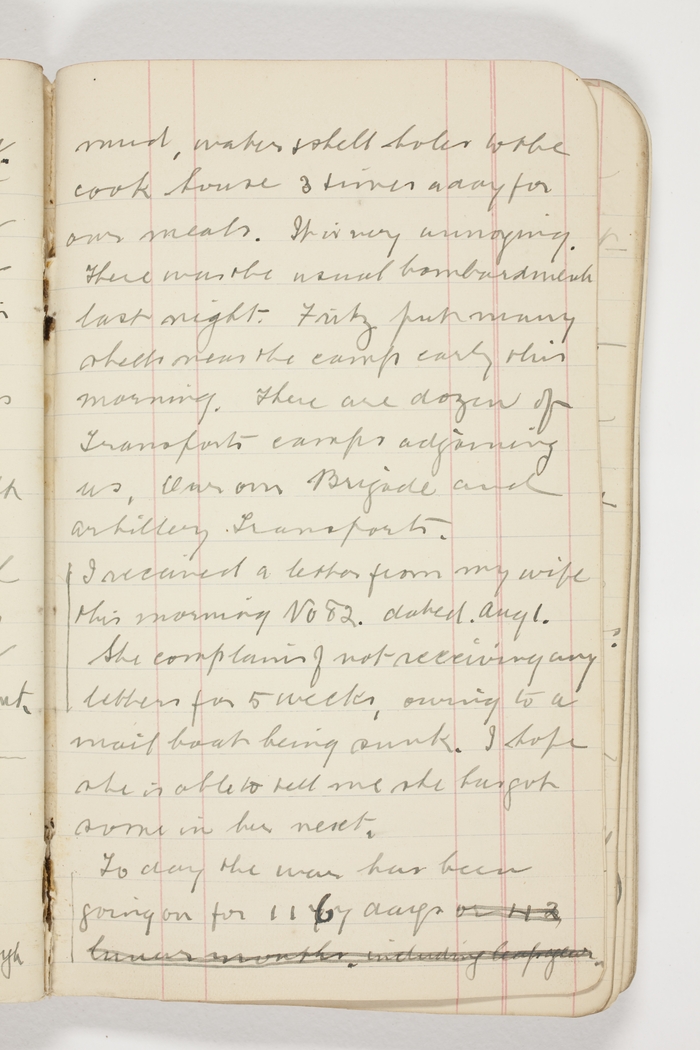 mud, water & shell holes to the
cook house 3 times a day for
our meals. It is very annoying.
There was the usual bombardment
last night. Fritz put many
shells near the camp early this
morning. There are dozen of
Transports camps adjoining
us, Our own Brigade and
artillery Transports.
I received a letter from my wife
this morning No 82. dated. Aug 1.
She complains of not receiving any
letters for 5 weeks, owing to a
mail boat being sunk. I hope
she is able to tell me she has got
some in her next.
To day the war has been
going on for 11 days or
lunar months. including leap year.